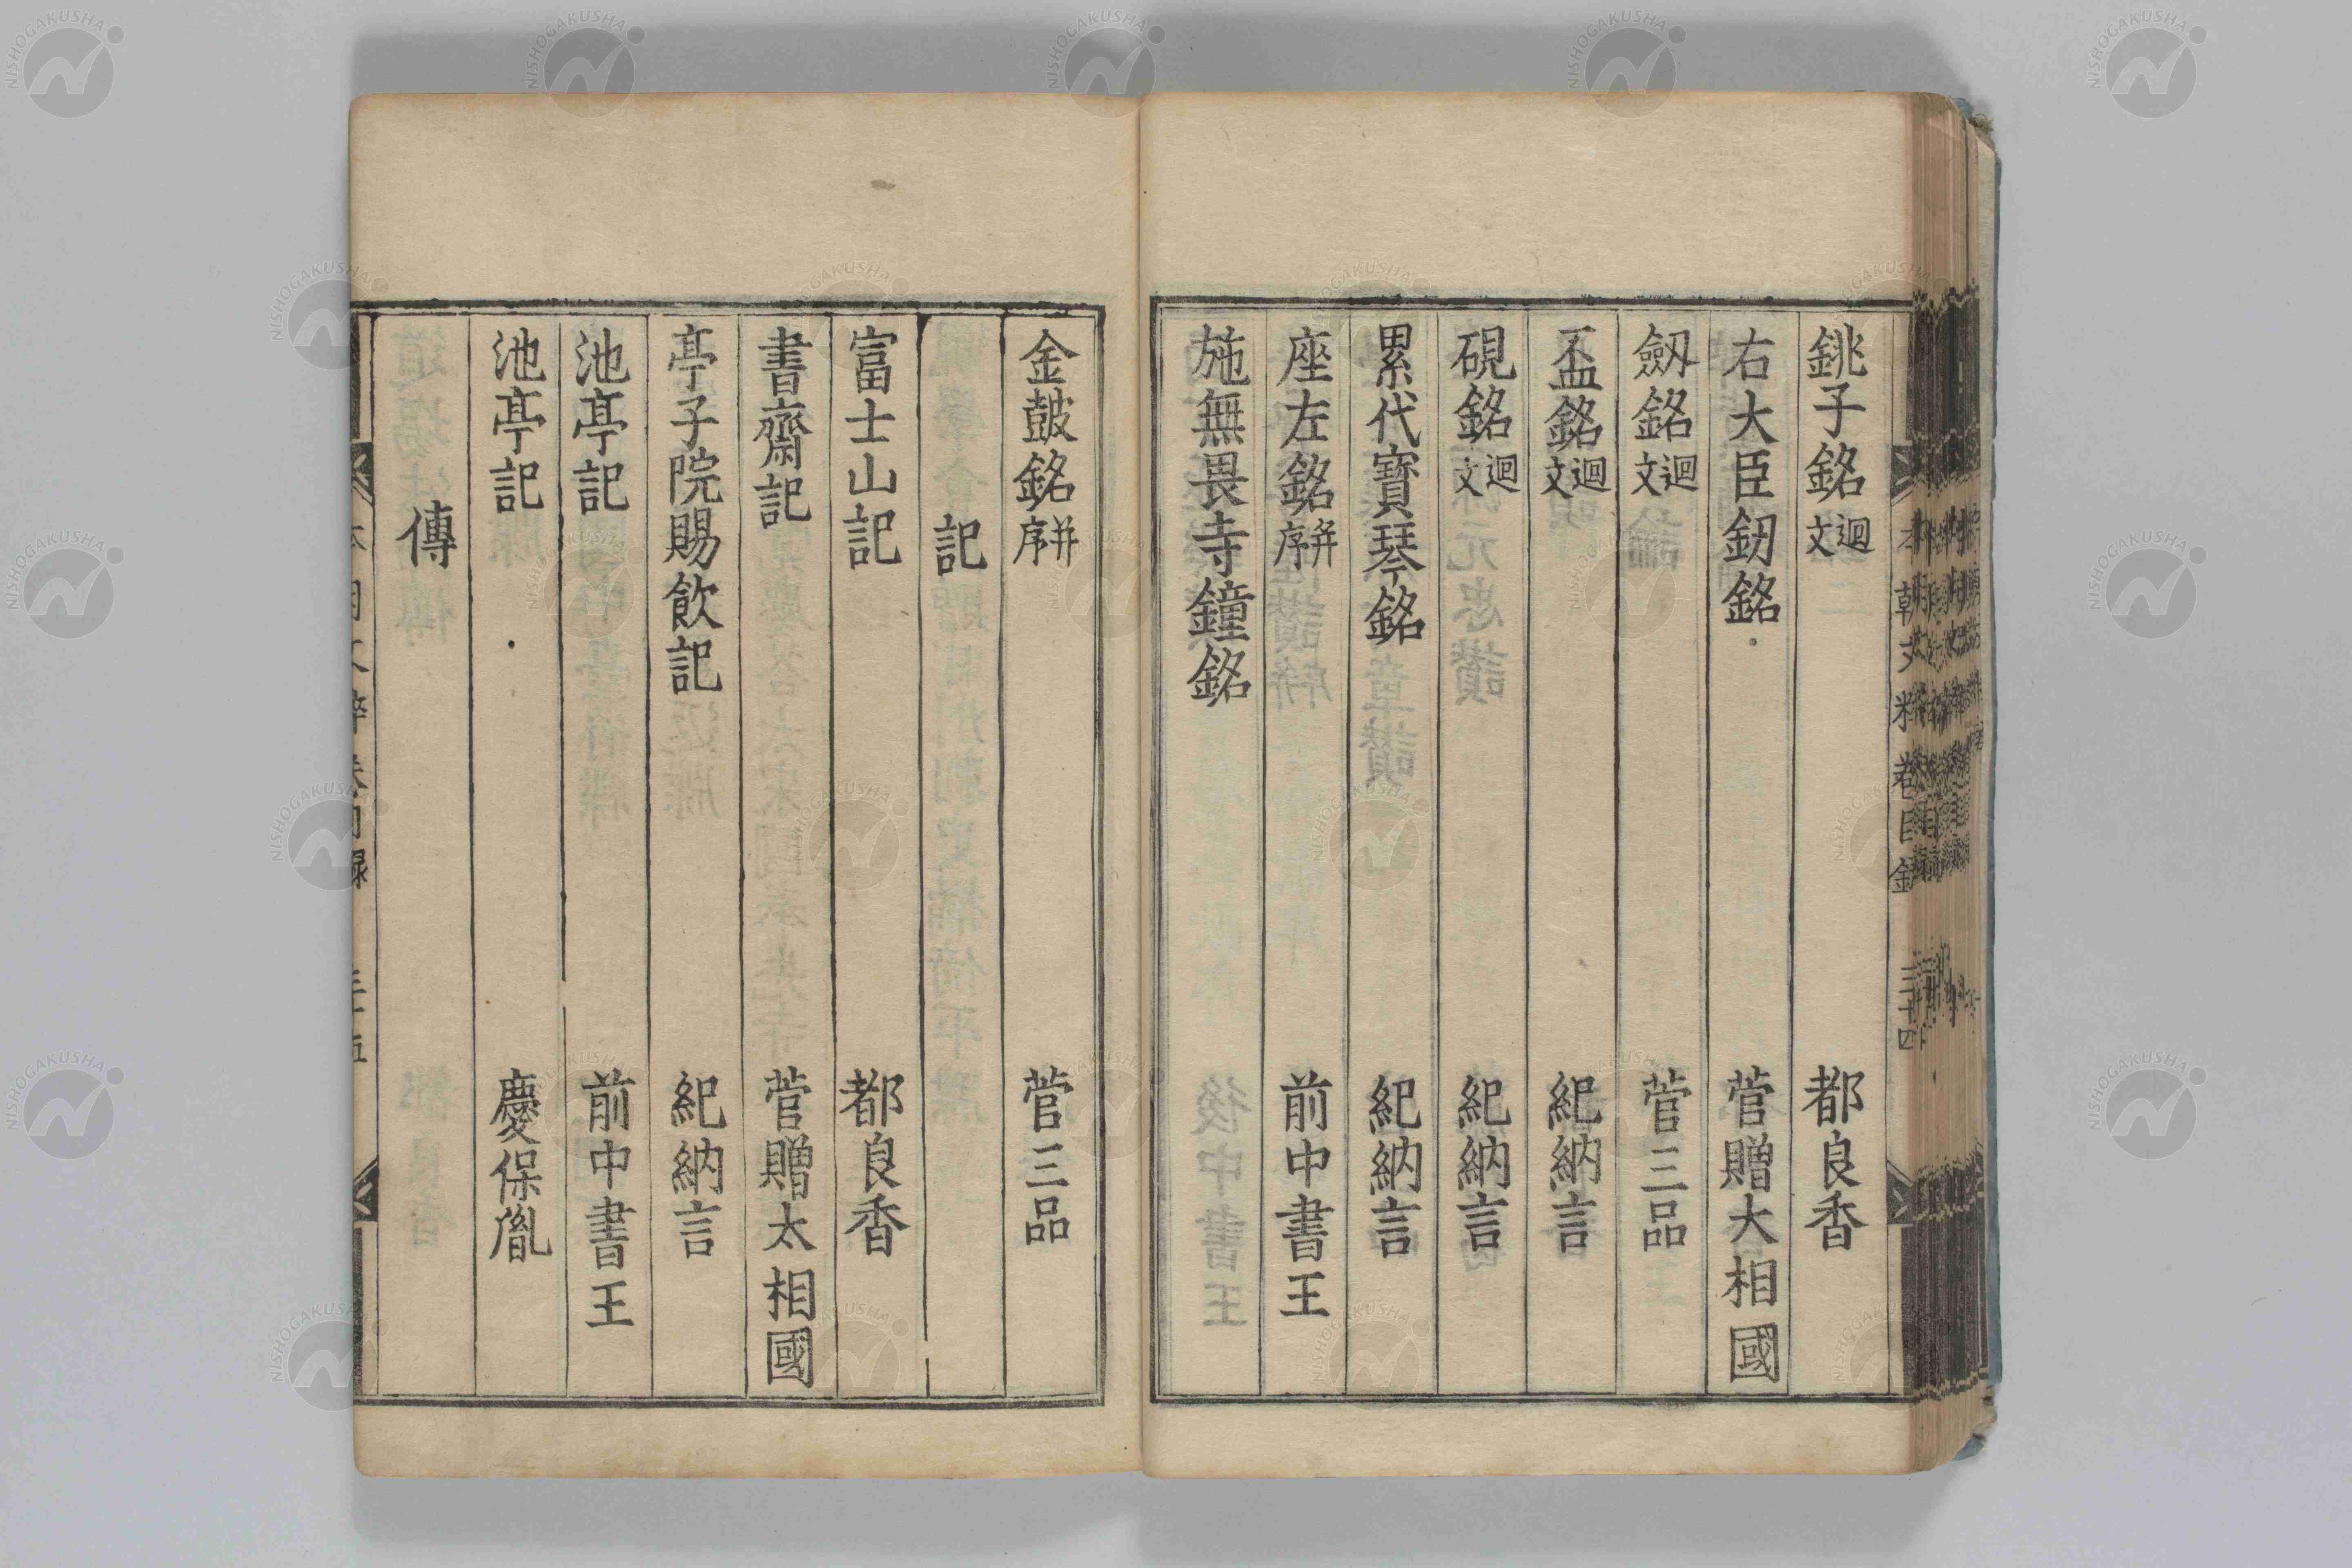 銚子銘 迴文 都良香
右大臣釼銘 菅贈大相國
劔銘 迴文 菅三品
盃銘 迴文 紀納言
硯銘 迴文 紀納言
累代寳琴銘 紀納言
座左銘 并序 前中書王
施無畏寺鐘銘
本朝文粹 卷目錄 三十四
金皷銘 并序 菅三品
記
富士山記 都良香
書齋記 菅贈太相國
亭子院賜飲記 紀納言
池亭記 前中書王
池亭記 慶保胤
傳
NISHOGAKUSHA